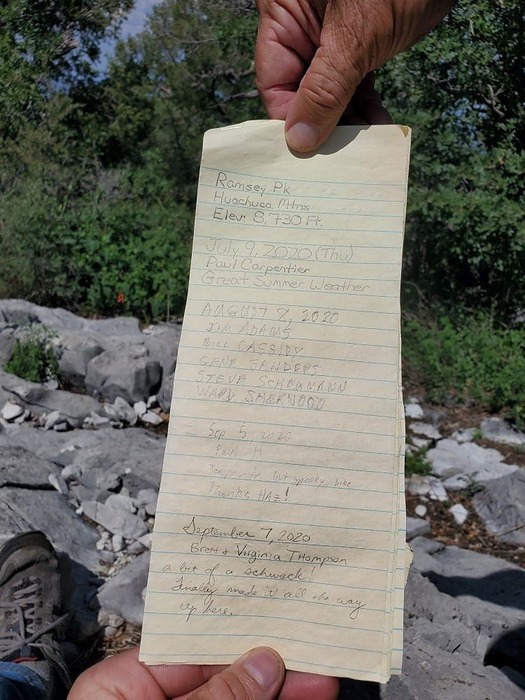 Ramsey Pk
Huachuca Mtns
Elev: 8,730 Ft.
July 9, 2020 (Thu)
Paul Carpentier
Great Summer Weather
AUGUST 8, 2020
JIM ADAMS
BILL CASSIDY
GENE SANDERS
STEVE SCHUMANN
WARD SHERWOOD
Sep 5 2020
Paul H
but spooky hike
Thanks HAZ!
September 7, 2020
Brett & Virginia Thompson
a bit of a schwack!
Finally made it all the way
up here.